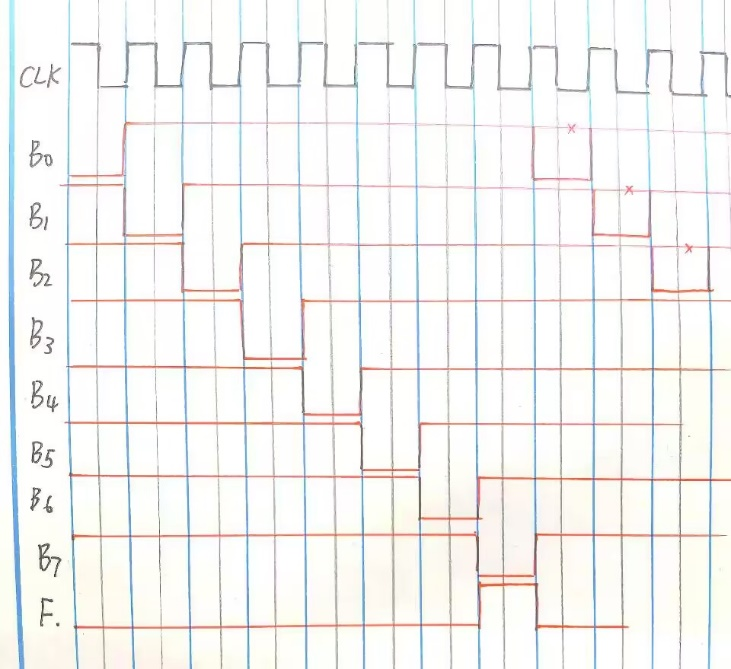 CLK
B0
B1
B2
B3
B4
B5
B6
B7
F.